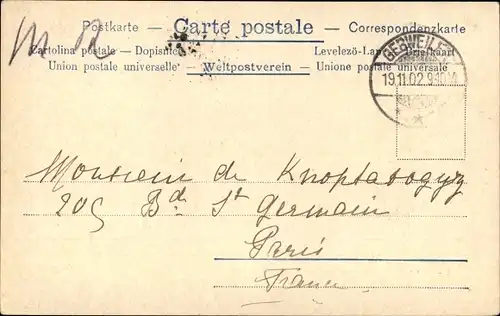 Postkarte — Carte postale — Correspondenzkarte
Cartolina postale — Dopisnice Levelezö-Lap Briefkaart
Union postale universelle — Weltpostverein — Unione postale universale
GEBWEILER
19.11.02.9-10V
Monsieur de
205 Bd St Germain
Paris
France